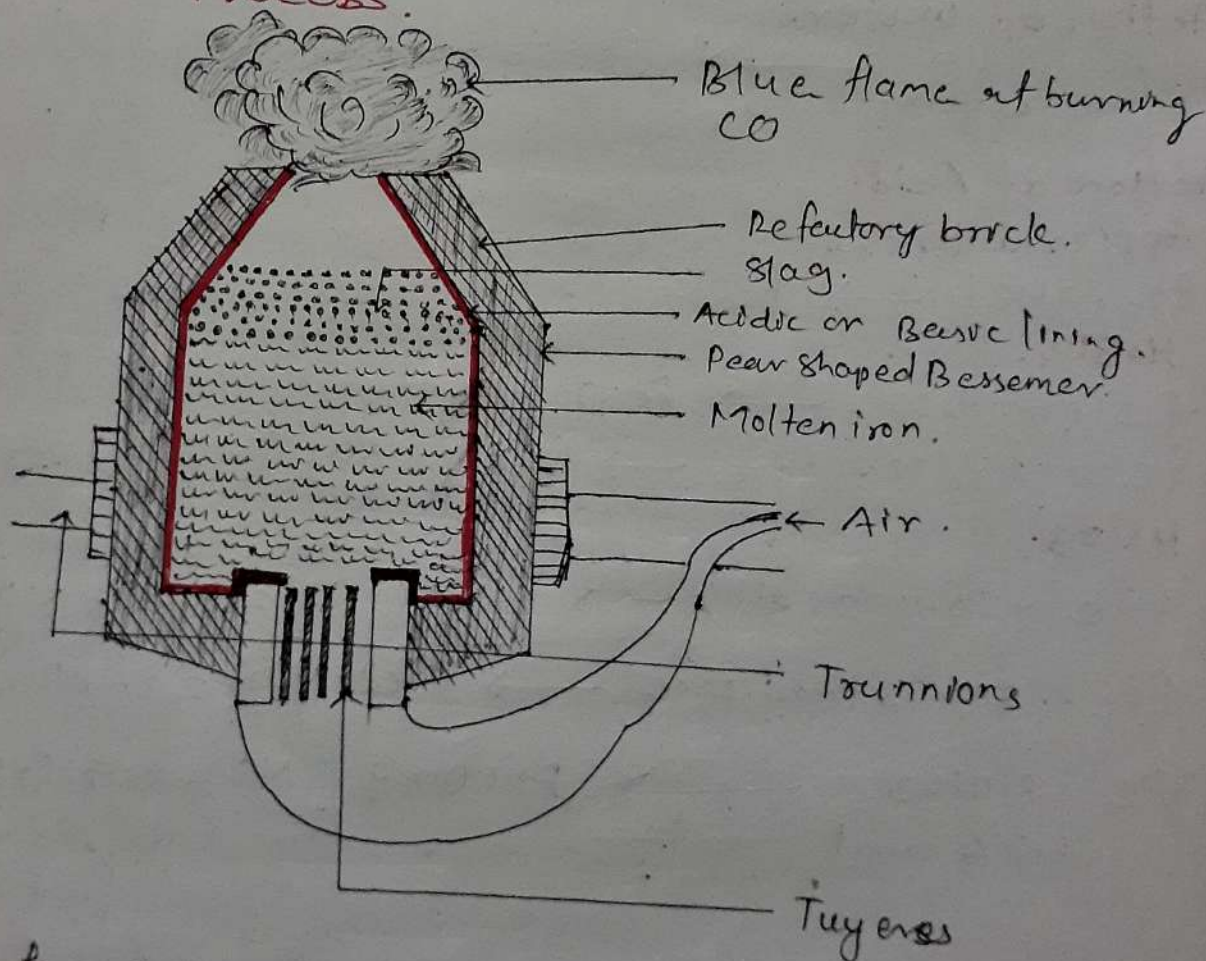 PROCESS.
Blue flame of burning
CO
Refactory brick.
Slag.
Acidic or Basic lining.
Pear shaped Bessemer.
Molten iron.
Air.
Trunnions
Tuyeres